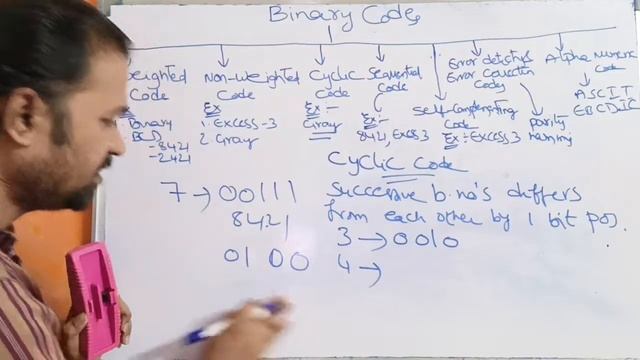 Binary Codes
Weighted Code
Ex
Binary
BCD
-8421
-2421
Non-weighted Code
Ex
1. Excess-3
2. Gray
Cyclic Code
Ex:-
Gray
Sequential Code
Ex:-
8421, Exces3
Self-Complementing Code
Ex:- Excess-3
Error detecting
Error correction
Codes
parity
Hamming
Alpha Numeric
Code
ASCII
EBCDIC
Cyclic Code
7 → 00111
8421
01 00
Successive b. no's differs
from each other by 1 bit pos.
3 → 0010
4 →